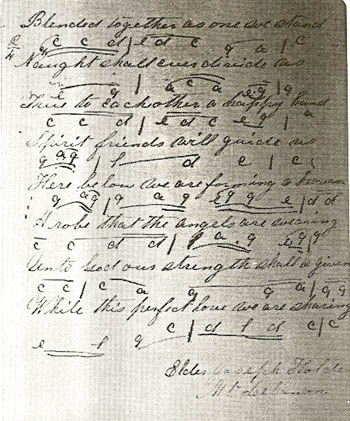 Blended together as one we stand
c c d | e d c g a | c
Naught shall ever divide us
True to each other a happy band
c c d | e d c e g | a
Spirit friends will guide us
g a g | f d e | c
Here below we are forming to
g a g | g a g e g g e | d d
A robe that the angels are wearing
c c d d | f a g
Unto God our strength shall be given
c c | c a g g a | g g
While this perfect love we are sharing
c | d f d c | c
e f g
Elder Joseph
Mt Lebanon